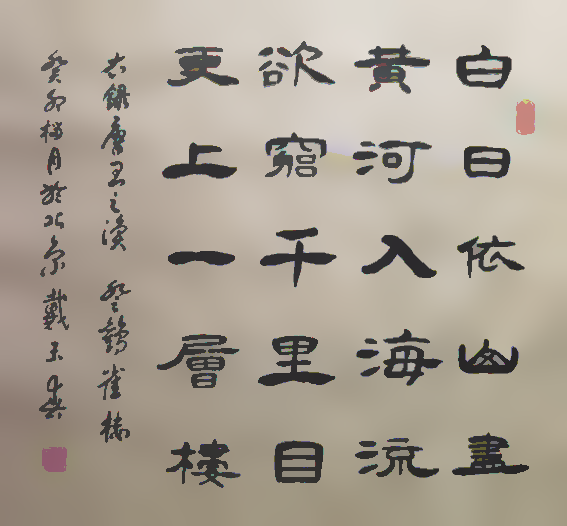 白日依山畫
黄河入海流
欲窮千里目
更上一層樓
右錄唐王之渙 登鸛雀樓
癸卯梅月於北京戴玉